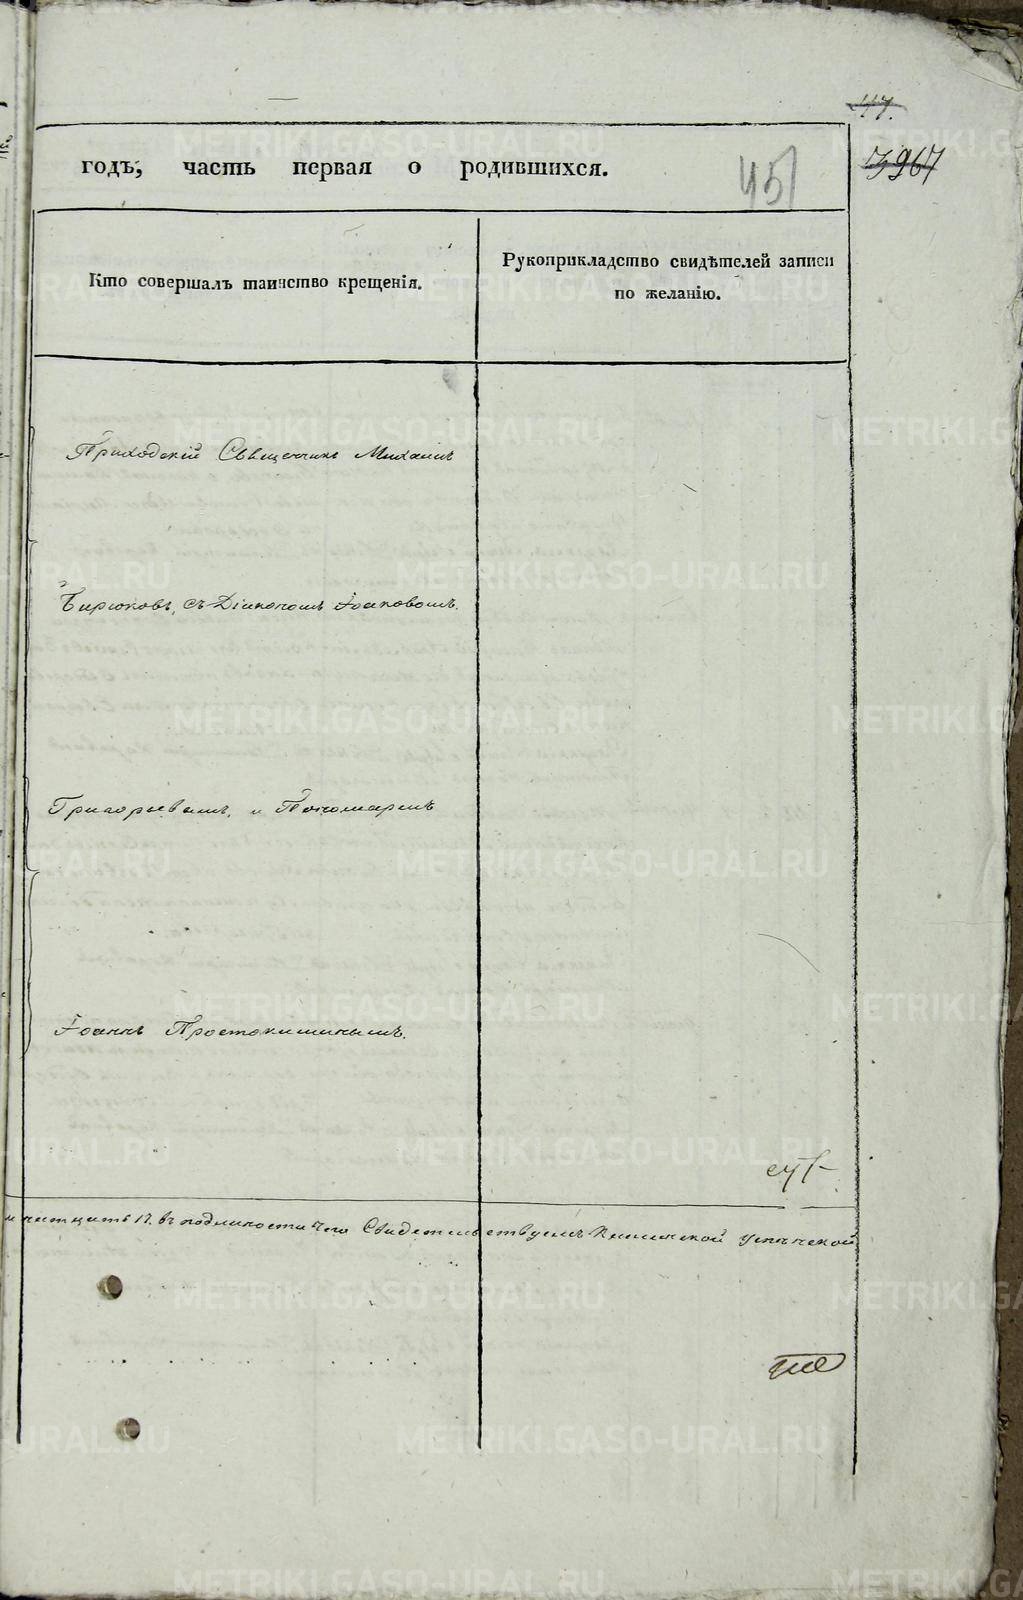 47.
годъ, часть первая о родившихся.
45
3967
Кто совершалъ таинство крещенія.
Рукоприкладство свидѣтелей записи
по желанію.
Приходскій Священникъ Михаилъ
Бирюковъ, съ Діакономъ Іоаковомъ
Григорьевымъ, и Пономаремъ
Іоанномъ Простокишинымъ.
въ подлинности чего Свидетельствуемъ
METRIKI.GASO-URAL.RU